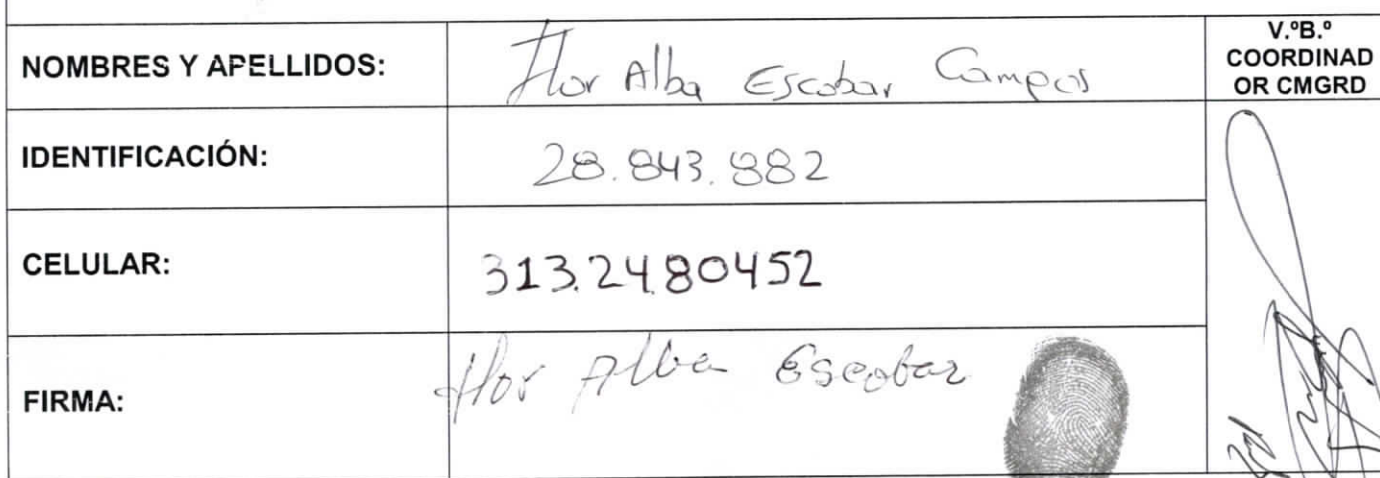 NOMBRES Y APELLIDOS: Flor Alba Escobar Campos
V.ºB.º
COORDINAD
OR CMGRD
IDENTIFICACIÓN: 28.843.882
CELULAR: 313.2480452
FIRMA: Flor Alba Escobar